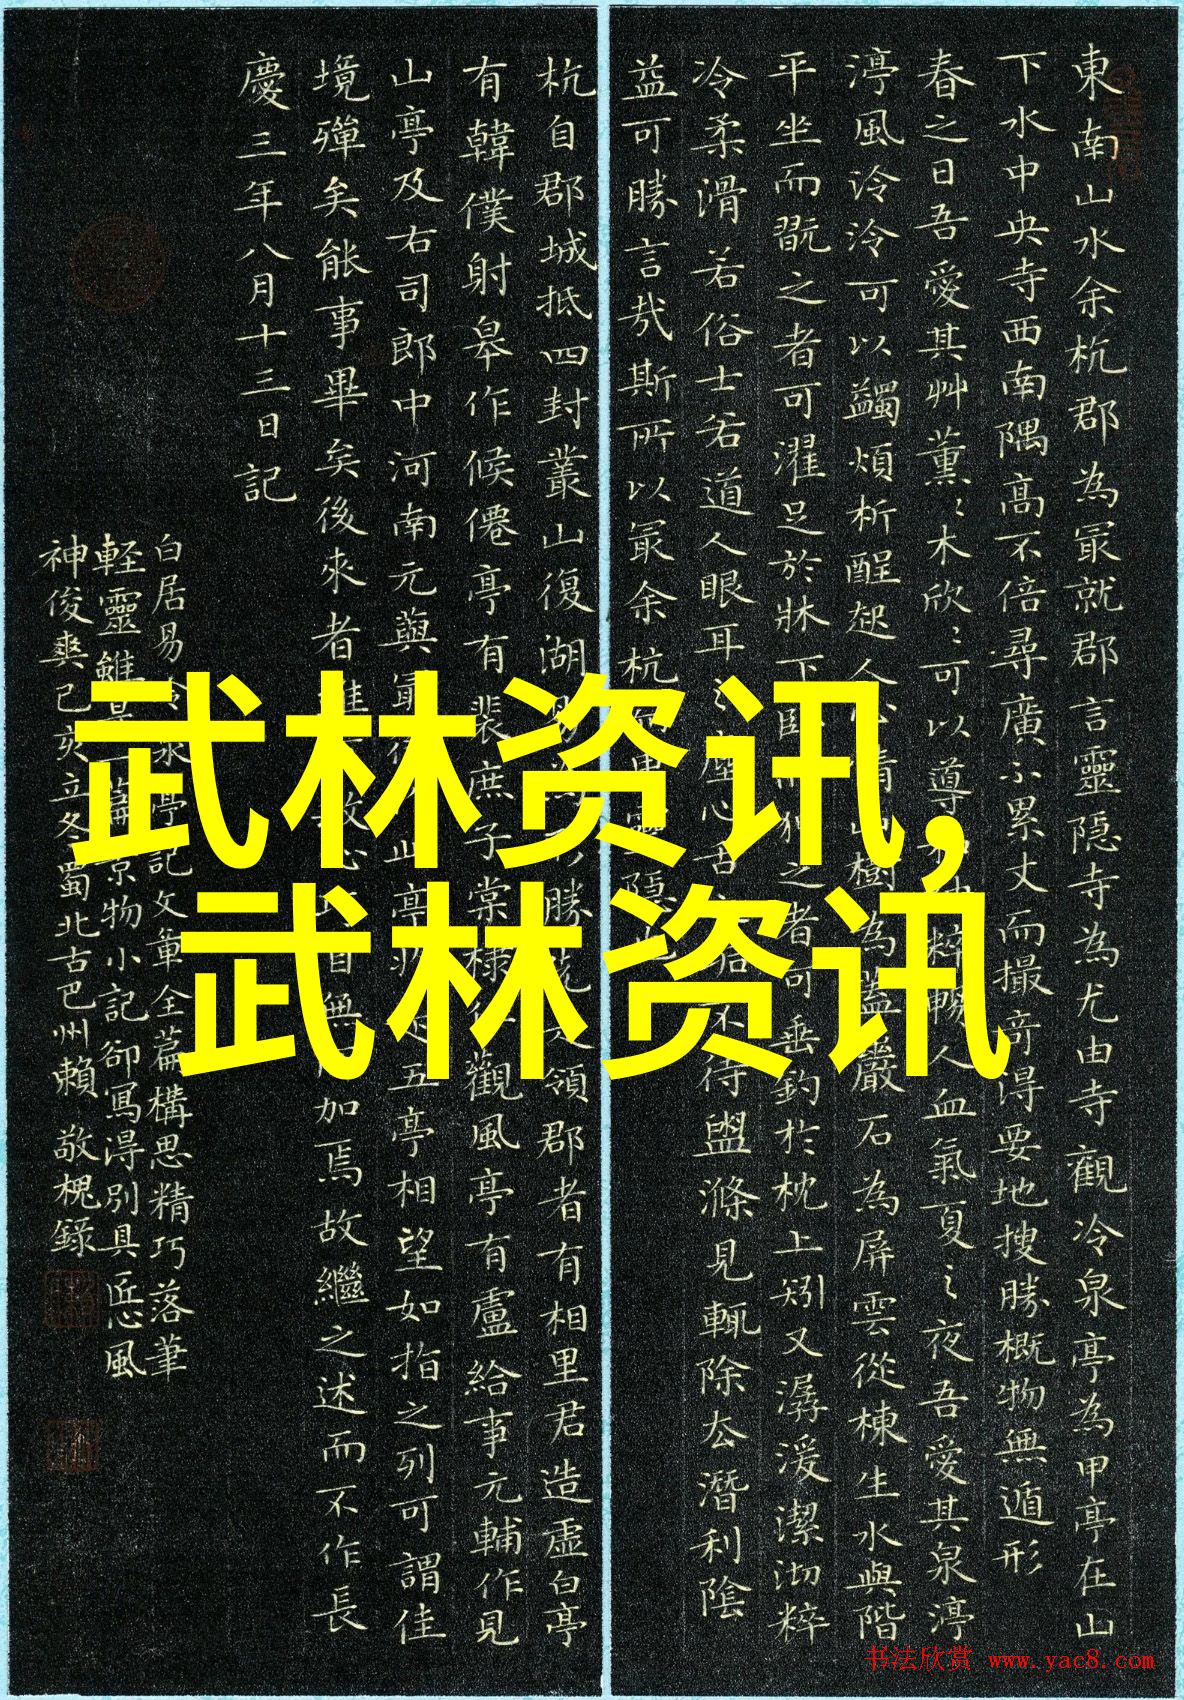 東南山水余杭郡為冣就郡言靈隠寺為尤由寺觀冷泉亭為甲亭在山
下水中央寺西南隅高不倍尋廣不累丈而撮竒得要地搜勝概物無遁形
春之日吾愛其艸薰〻木欣〻可以導和納粹暢人血氣夏之夜吾愛其泉渟
渟風泠泠可以蠲煩析酲起人心情山樹為蓋巖石為屏雲從棟生水與階
平坐而翫之者可濯足於牀下臥而狎之者可垂釣於枕上矧又潺湲潔沏粹
冷柔滑若俗士若道人眼耳之塵心古之垢不待盥滌見輒除去潛利陰
益可勝言哉斯所以冣余杭而甲靈隱也
杭自郡城抵四封叢山復湖易為形勝先之領郡者有相里君造虛白亭
有韓僕射皋作候僊亭有裴庶子棠棣作觀風亭有盧給事元輔作見
山亭及右司郎中河南元藇冣後作此亭於是五亭相望如指之列可謂佳
境殫矣能事畢矣後來者雖有敏心巧目無所加焉故繼之述而不作長
慶三年八月十三日記
白居易冷泉亭記文章全篇構思精巧落筆
軽靈雖是一篇景物小記卻寫得別具匠心風
神俊爽己亥立冬蜀北古巴州賴敬槐錄
武林资讯,
武林资讯
书法欣赏 www.yac8.com